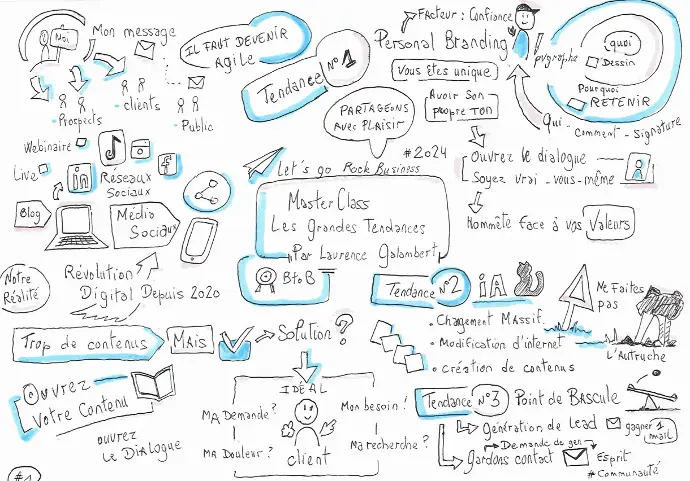 Moi
Mon message
Prospects
- clients
- Public
Webinaire
Live
in
f
Réseaux
Sociaux
Blog
Média
Sociaux
Notre
Réalité
Révolution
Digital Depuis 2020
Trop de contenus
MAis
Solution ?
Ouvrez
Votre Contenu
ouvrez
Le DiAlogue
#1
IL FAUT DEVENIR
AgiLe
Tendance N°1
PARTAGEONS
Avec PLaisir
#2024
Let's go Rock Business
Master Class
Les Grandes Tendances
Par Laurence Galambert
BtoB
IDÉAL
MA Demande ?
Mon besoin !
MA Douleur ?
Ma recherche ?
client
Facteur : Confiance
Personal Branding
Vous êtes unique
Avoir Son
propre Ton
Ouvrez le dialogue
Soyez vrai - vous-même
Honnête face à vos Valeurs
quoi
Dessin
Pourquoi
RETENIR
Qui - comment - Signature
Tendance N°2
iA
. Changement MAssif.
. Modification d'internet
. création de contenus
Ne Faites
pas
L'Autruche
Tendance N°3
Point de BAscule
génération de Lead
gagner 1
mail
Demande de gen
Gardons contact
Esprit
#Communauté